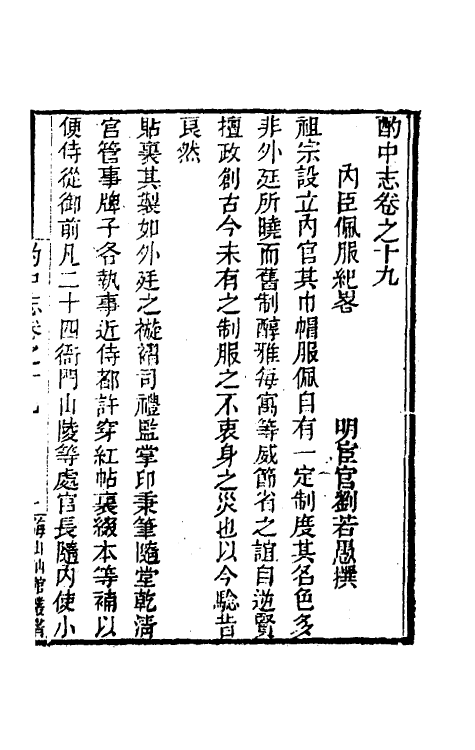 酌中志卷之十九
內臣佩服紀畧　　明宦官劉若愚撰
祖宗設立內官其巾帽服佩自有一定制度其名色多
非外廷所曉而舊制醇雅每寓等威節省之誼自逆賢
擅政創古今未有之制服之不衷身之災也以今驗昔
良然
貼裏其製如外廷之𧞤褶司禮監掌印秉筆隨堂乾清
官管事牌子各執事近侍都許穿紅帖裏綴本等補以
便侍從御前凡二十四衙門山陵等處官長隨內使小
酌中志卷之十九
海山仙館叢書